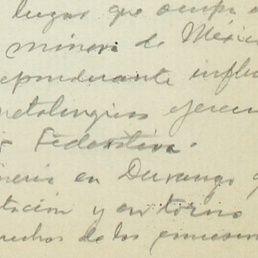 lugar que ocupa e
minera de México
eponderante influ
metalúrgica ejerce
Federativa.
minería en Durango q
tación y en torno
muchos de los